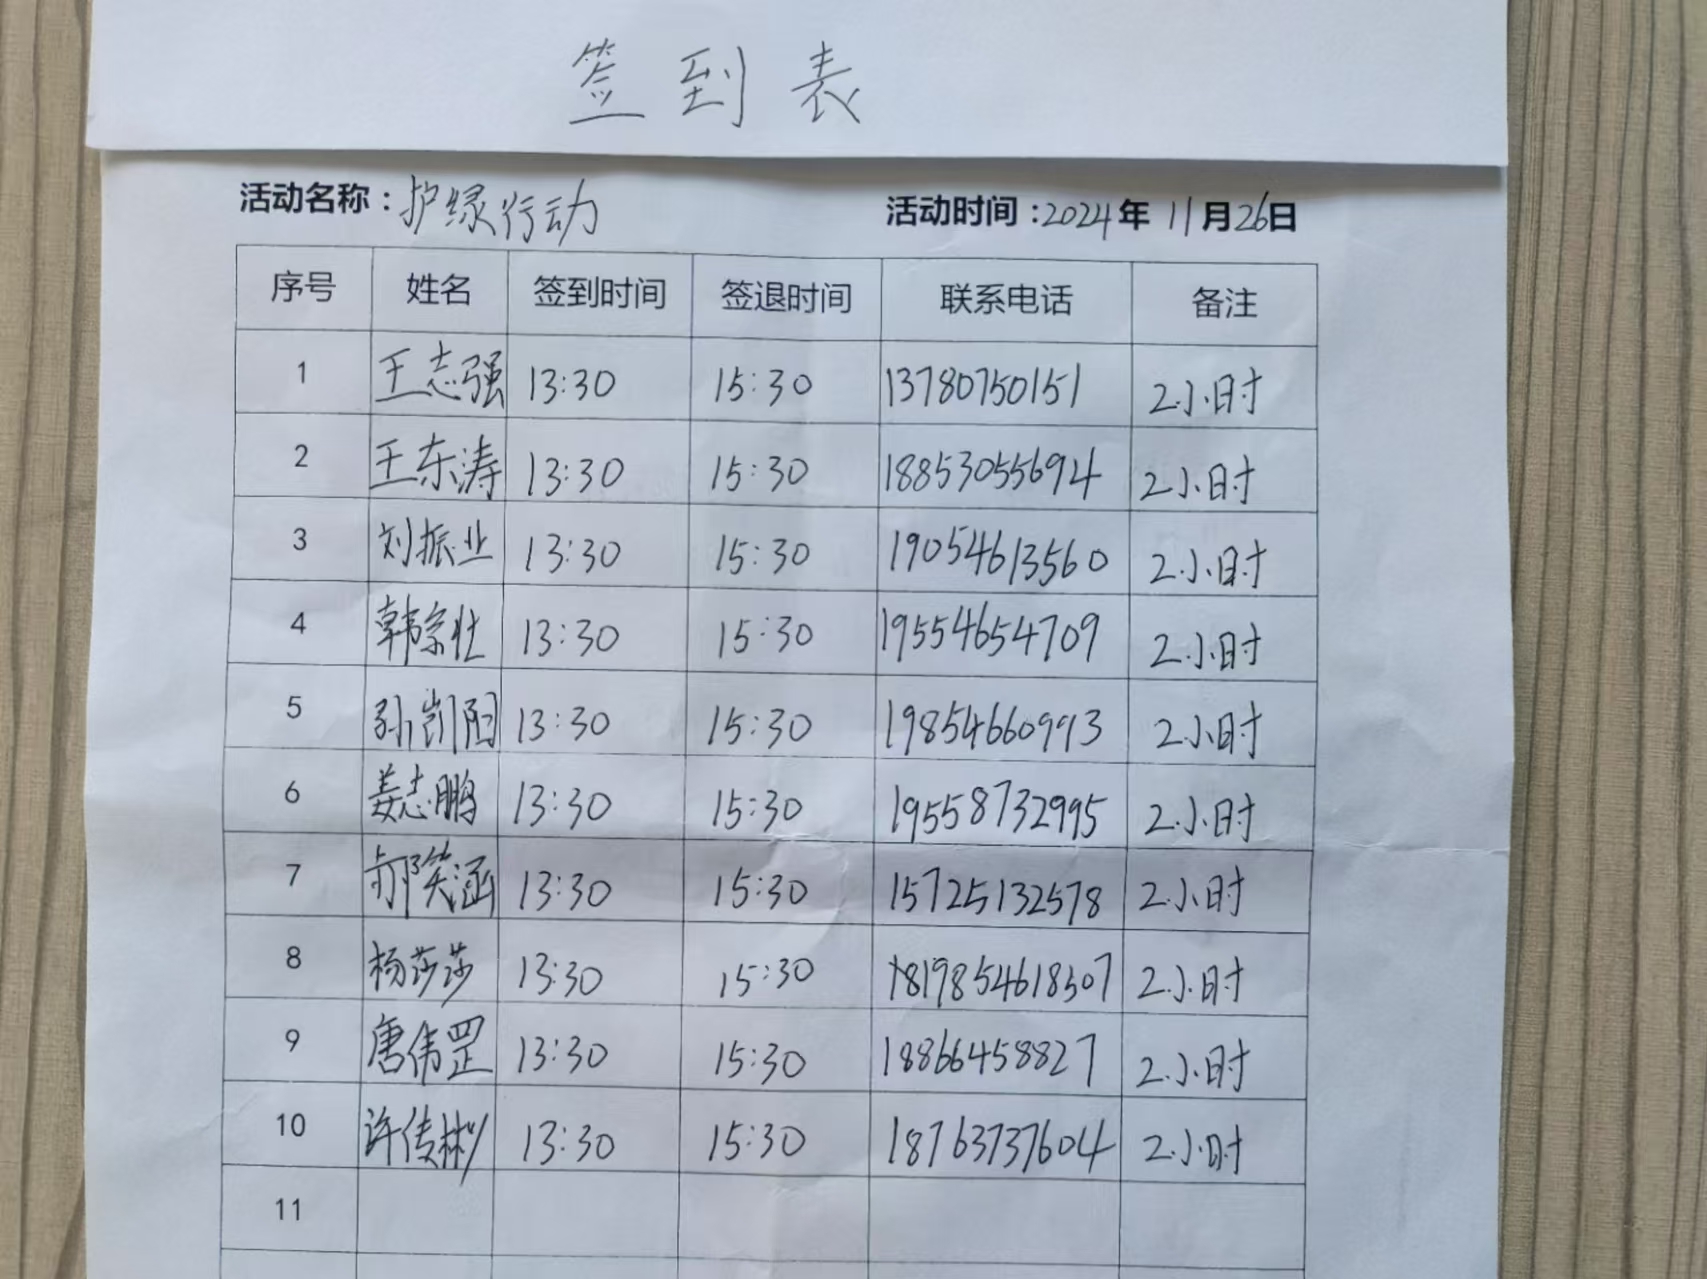 签到表
活动名称：护绿行动 活动时间：2024年11月26日
序号 姓名 签到时间 签退时间 联系电话 备注
1 王志强 13:30 15:30 13780750151 2小时
2 王东涛 13:30 15:30 18853055694 2小时
3 刘振业 13:30 15:30 19054613560 2小时
4 韩宗壮 13:30 15:30 19554654709 2小时
5 孙凯阳 13:30 15:30 19854660993 2小时
6 姜志鹏 13:30 15:30 19558732995 2小时
7 郝笑涵 13:30 15:30 15725132578 2小时
8 杨莎莎 13:30 15:30 2小时
9 唐伟罡 13:30 15:30 18866458827 2小时
10 许传彬 13:30 15:30 18763737604 2小时
11